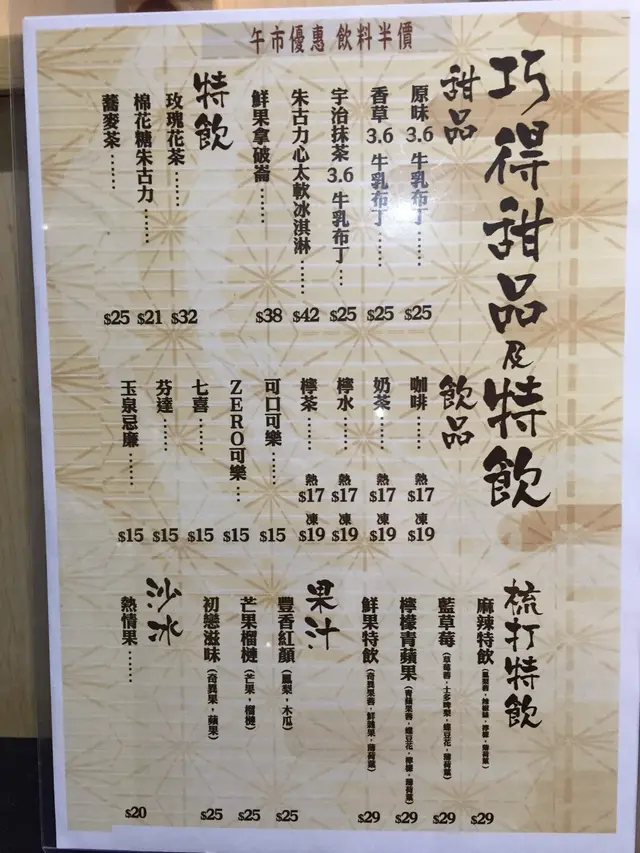 午市優惠 飲料半價
巧得甜品及特飲
甜品
原味 3.6 牛乳布丁…… $25
香草 3.6 牛乳布丁…… $25
宇治抹茶 3.6 牛乳布丁… $25
朱古力心太軟冰淇淋…… $42
鮮果拿破崙…… $38
特飲
玫瑰花茶…… $32
棉花糖朱古力…… $21
蕎麥茶…… $25
飲品
咖啡…… 熱 $17 凍 $19
奶茶…… 熱 $17 凍 $19
檸水…… 熱 $17 凍 $19
檸茶…… 熱 $17 凍 $19
可口可樂…… $15
ZERO可樂… $15
七喜…… $15
芬達…… $15
玉泉忌廉…… $15
梳打特飲
麻辣特飲 $29
藍草莓 $29
檸檬青蘋果 $29
鮮果特飲 $29
果汁
豐香紅顏(鳳梨,木瓜) $25
芒果榴槤(芒果,榴槤) $25
初戀滋味(奇異果,蘋果) $25
沙冰
熱情果…… $20